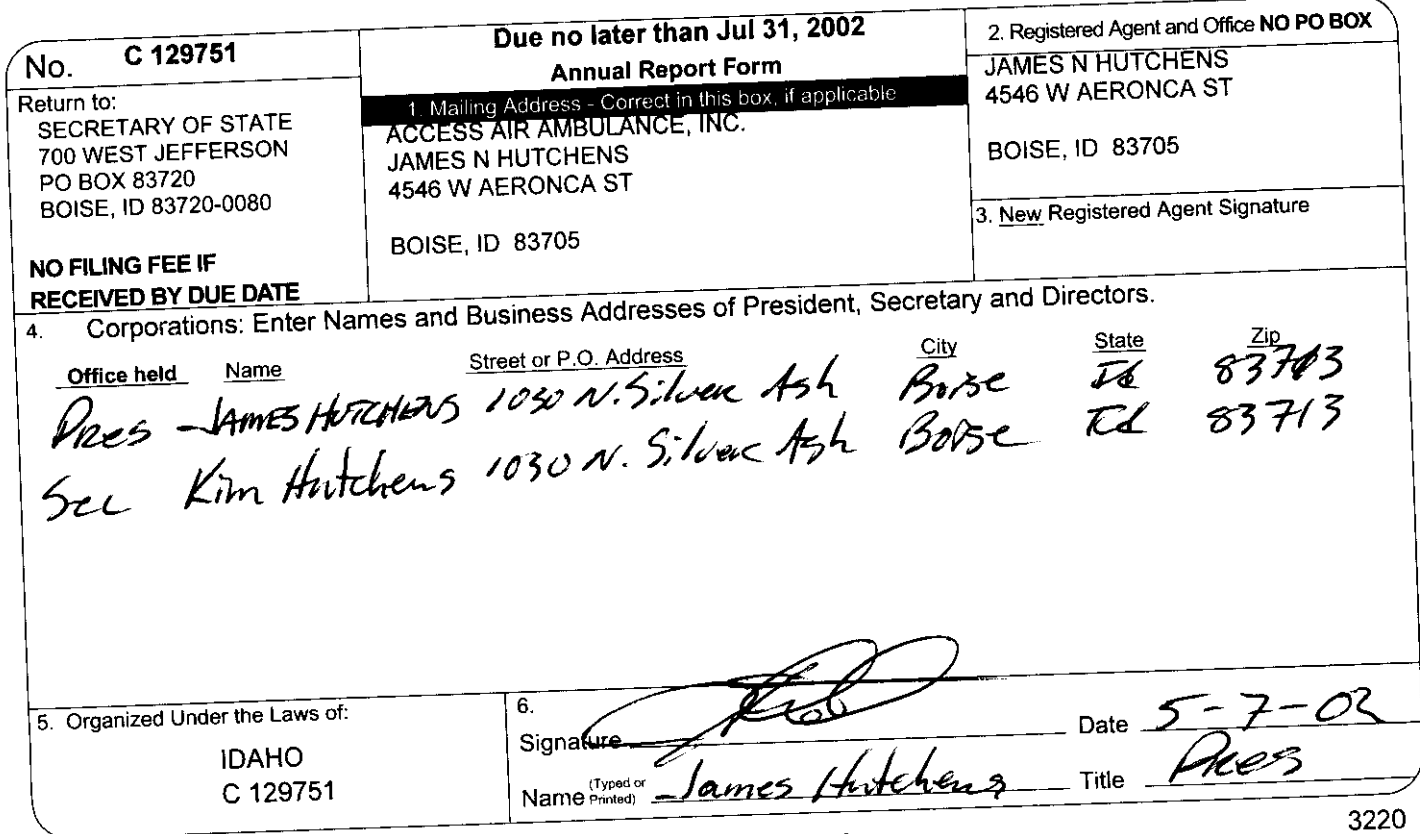 No. C 129751
Return to:
SECRETARY OF STATE
700 WEST JEFFERSON
PO BOX 83720
BOISE, ID 83720-0080
NO FILING FEE IF
RECEIVED BY DUE DATE
Due no later than Jul 31, 2002
Annual Report Form
1. Mailing Address - Correct in this box, if applicable
ACCESS AIR AMBULANCE, INC.
JAMES N HUTCHENS
4546 W AERONCA ST
BOISE, ID 83705
2. Registered Agent and Office NO PO BOX
JAMES N HUTCHENS
4546 W AERONCA ST
BOISE, ID 83705
3. New Registered Agent Signature
4. Corporations: Enter Names and Business Addresses of President, Secretary and Directors.
Office held Name Street or P.O. Address City State Zip
Pres JAMES HUTCHENS 1030 N. Silver Ash Boise Id 83713
Sec Kim Hutchens 1030 N. Silver Ash Boise Id 83713
5. Organized Under the Laws of:
IDAHO
C 129751
6.
Signature Date 5-7-02
Name (Typed or Printed) James Hutchens Title Pres
3220